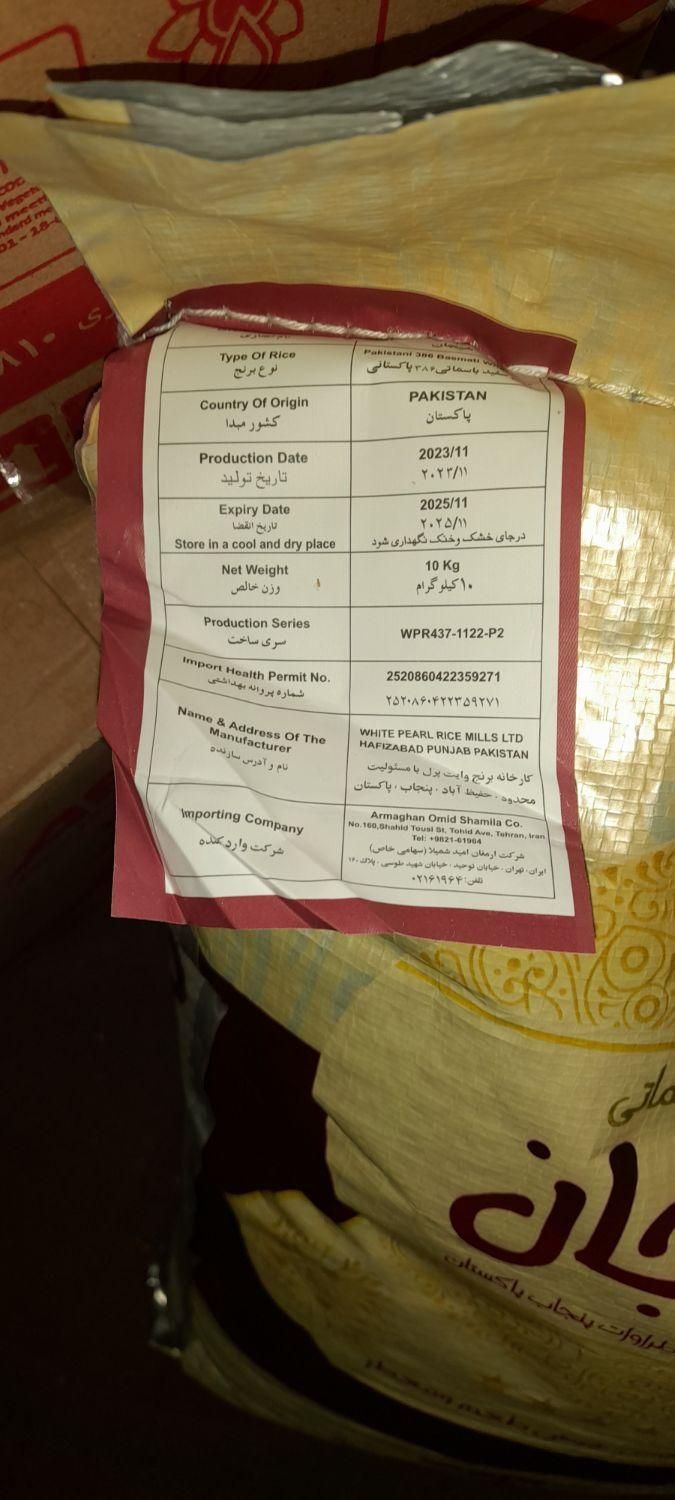 Type Of Rice
نوع برنج
Pakistani 386 Basmati
سفید باسماتی ۳۸۶ پاکستانی
Country Of Origin
کشور مبدا
PAKISTAN
پاکستان
Production Date
تاریخ تولید
2023/11
۲۰۲۳/۱۱
Expiry Date
تاریخ انقضا
Store in a cool and dry place
2025/11
۲۰۲۵/۱۱
درجای خشک وخنک نگهداری شود
Net Weight
وزن خالص
10 Kg
۱۰کیلوگرام
Production Series
سری ساخت
WPR437-1122-P2
Import Health Permit No.
شماره پروانه بهداشتی
2520860422359271
۲۵۲۰۸۶۰۴۲۲۳۵۹۲۷۱
Name & Address Of The
Manufacturer
نام و آدرس سازنده
WHITE PEARL RICE MILLS LTD
HAFIZABAD PUNJAB PAKISTAN
کارخانه برنج وایت پرل با مسئولیت
محدود ، حفیظ آباد ، پنجاب ، پاکستان
Importing Company
شرکت وارد کننده
Armaghan Omid Shamila Co.
No.160,Shahid Tousi St, Tohid Ave, Tehran, Iran
Tel: +9821-61964
شرکت ارمغان امید شمیلا (سهامی خاص)
ایران ، تهران ، خیابان توحید ، خیابان شهید طوسی ، پلاک ۱۶۰
تلفن: ۰۲۱۶۱۹۶۴
ماتی
جان
پنجاب پاکستان